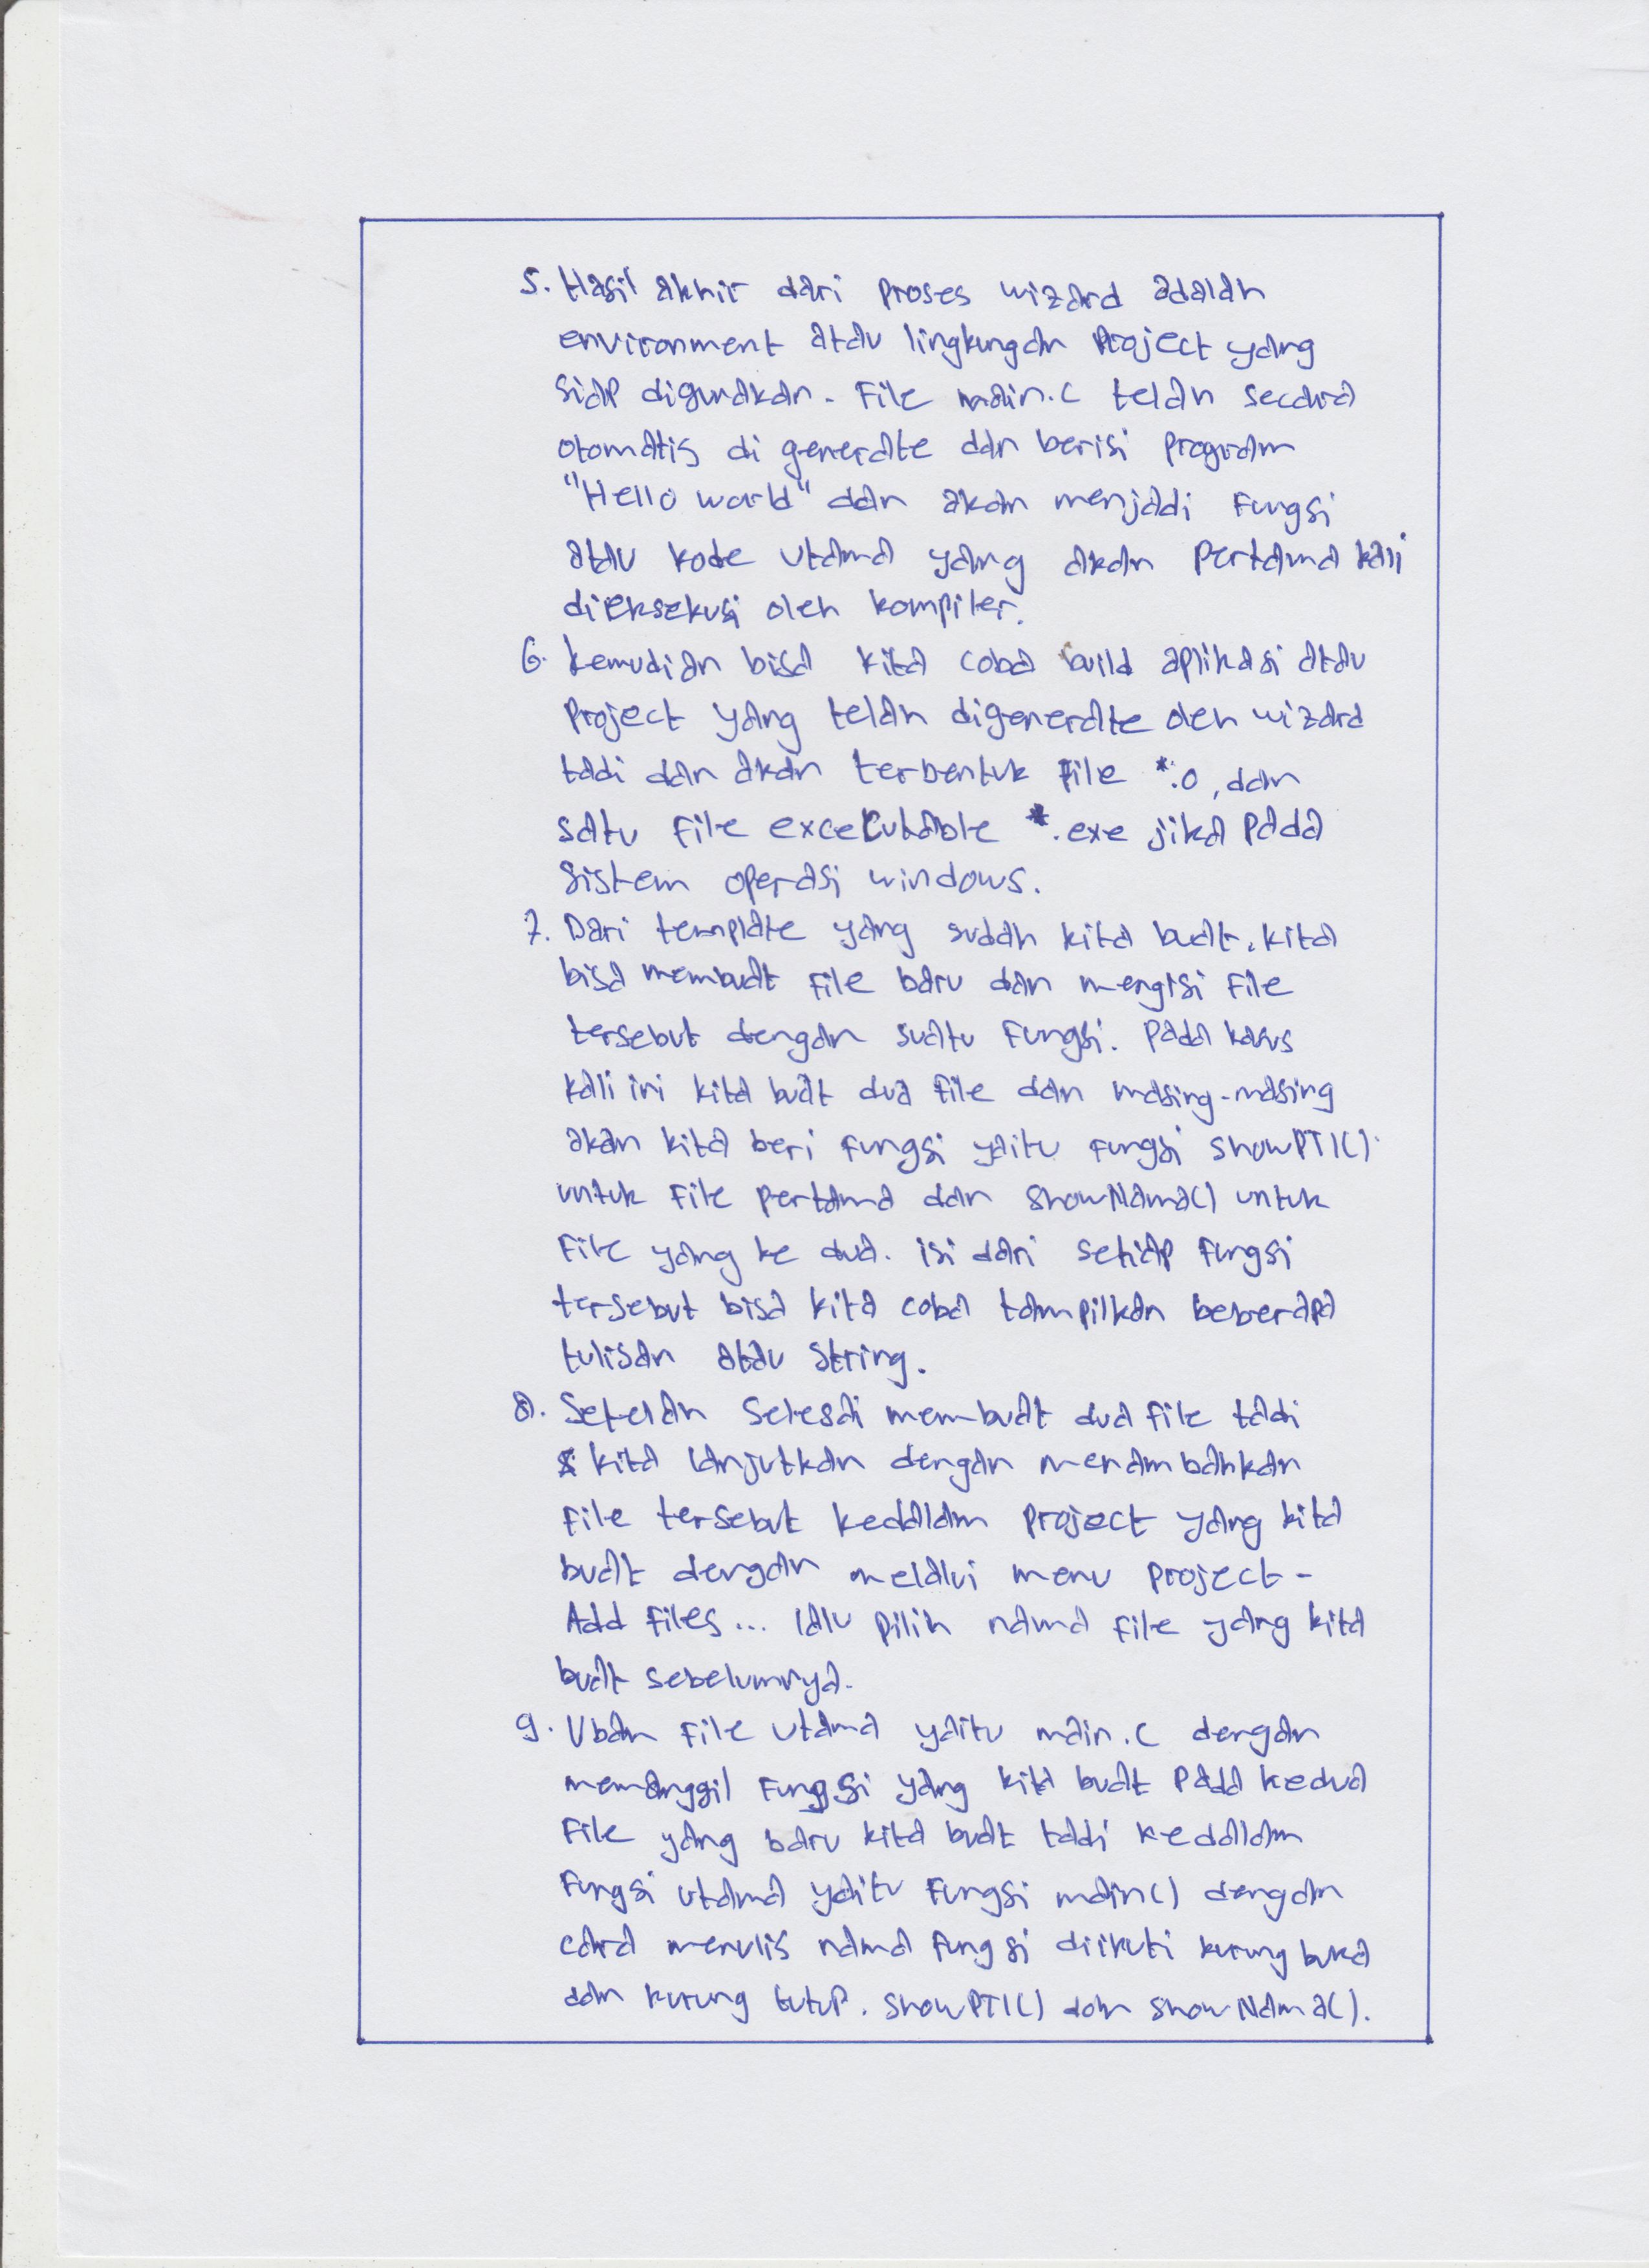 5. Hasil akhir dari proses wizard adalah
environment atau lingkungan project yang
siap digunakan. File main.c telah secara
otomatis di generate dan berisi program
"Hello world" dan akan menjadi fungsi
atau kode utama yang akan pertama kali
dieksekusi oleh kompiler.
6. kemudian bisa kita coba build aplikasi atau
project yang telah digenerate oleh wizard
tadi dan akan terbentuk file *.o, dan
satu file excecutable *.exe jika pada
sistem operasi windows.
7. Dari template yang sudah kita buat, kita
bisa membuat file baru dan mengisi file
tersebut dengan suatu fungsi. pada kasus
kali ini kita buat dua file dan masing-masing
akan kita beri fungsi yaitu fungsi showPTI()
untuk file pertama dan showNama() untuk
file yang ke dua. isi dari setiap fungsi
tersebut bisa kita coba tampilkan beberapa
tulisan atau string.
8. Setelah selesai membuat dua file tadi
kita lanjutkan dengan menambahkan
file tersebut kedalam project yang kita
buat dengan melalui menu project -
Add files... lalu pilih nama file yang kita
buat sebelumnya.
9. Ubah file utama yaitu main.c dengan
memanggil fungsi yang kita buat pada kedua
file yang baru kita buat tadi kedalam
fungsi utama yaitu fungsi main() dengan
cara menulis nama fungsi diikuti kurung buka
dan kurung tutup. showPTI() dan showNama().